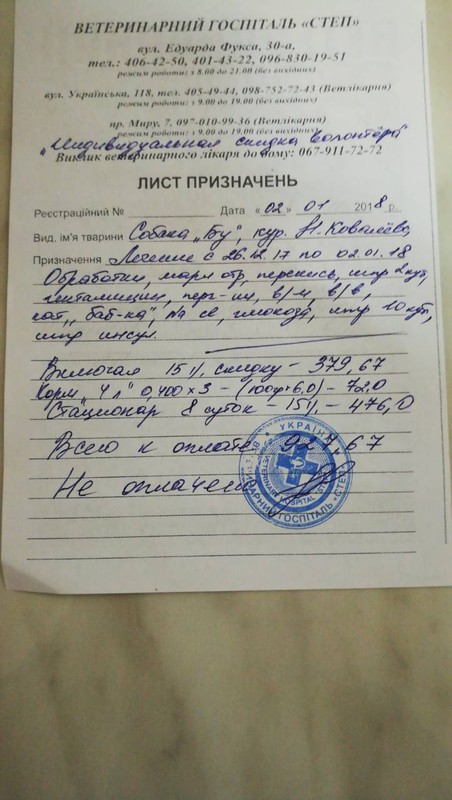 ВЕТЕРИНАРНИЙ ГОСПІТАЛЬ «СТЕП»
вул. Едуарда Фукса, 30-а,
тел.: 406-42-50, 401-43-22, 096-830-19-51
режим роботи: з 8.00 до 21.00 (без вихідних)
вул. Українська, 118, тел. 405-49-44, 098-752-72-43 (Ветлікарня)
режим роботи: з 9.00 до 19.00 (без вихідних)
пр. Миру, 7, 097-010-99-36 (Ветлікарня)
режим роботи: з 9.00 до 19.00 (без вихідних)
„Индивидуальная скидка волонтёра"
Виклик ветеринарного лікаря до дому: 067-911-72-72
ЛИСТ ПРИЗНАЧЕНЬ
Реєстраційний № Дата «02» 01 2018 р.
Вид. ім'я тварини Собака „Бу", кур. Н. Ковалёва
Призначення Лечение с 26.12.17 по 02.01.18
Обработки, марл отр, перекись, шпр 2 куб,
гентамицин, в/м, в/в,
кат „баб-ка", Na се, глюкоза, шпр 10 куб,
шпр инсул.
Включая 15%, скидку - 379,67
Корм „4 л" 0,400 х 3 - (100ф+6,0) - 72,0
Стационар 8 суток - 15% - 476,0
Всего к оплате 927,67
Не оплачено
УКРАЇНА
ВЕТЕРИНАРНИЙ ГОСПІТАЛЬ "СТЕП"
VETERINARY HOSPITAL